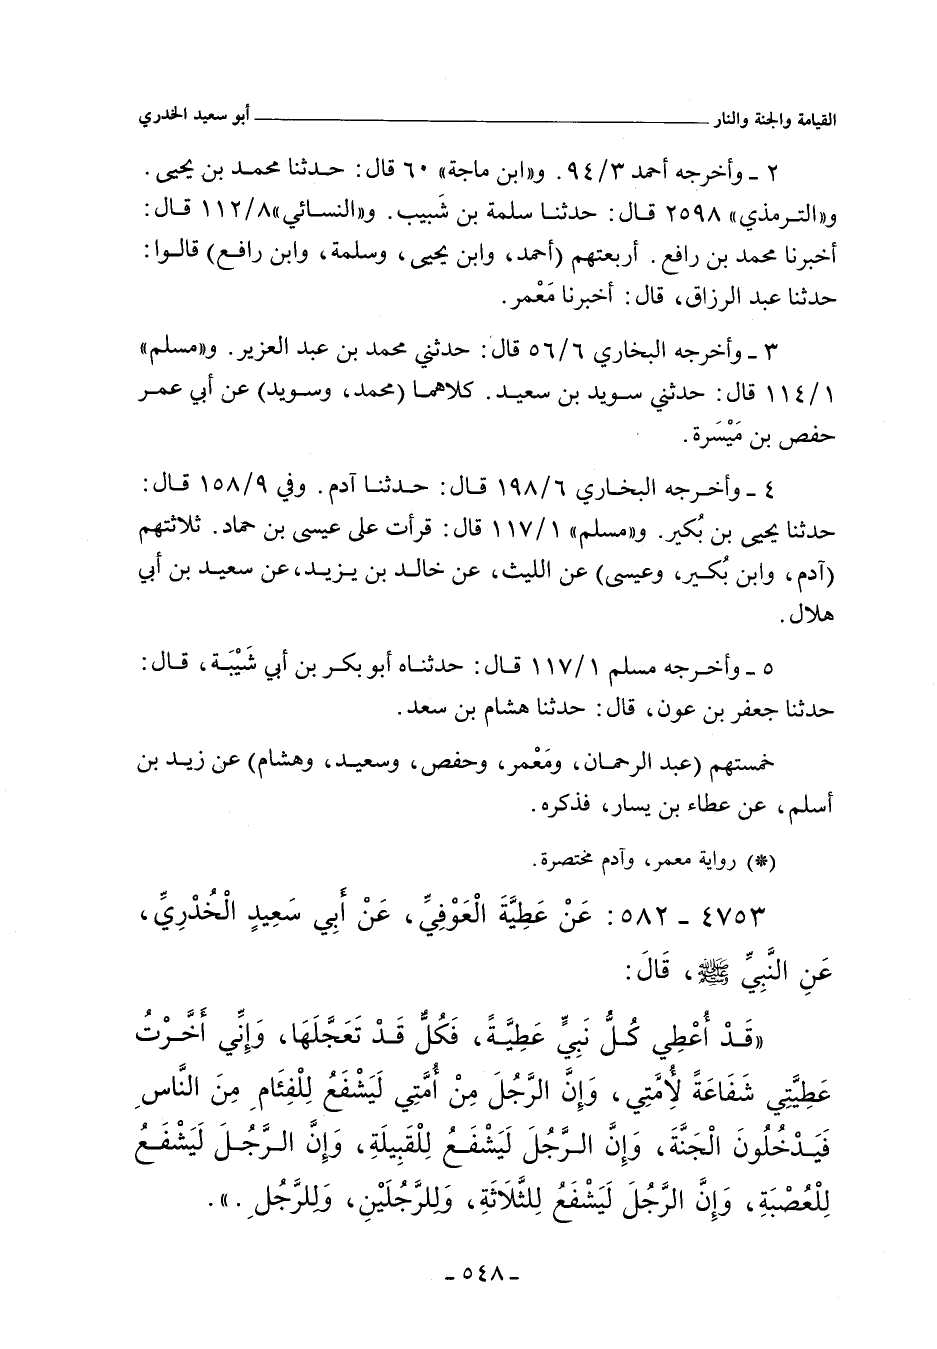 القيامة والجنة والنار ــــــ أبو سعيد الخدري
٢ ـ وأخرجه أحمد ٩٤/٣. و«ابن ماجة» ٦٠ قال: حدثنا محمد بن يحيى.
و«الترمذي» ٢٥٩٨ قال: حدثنا سلمة بن شَبيب. و«النسائي» ١١٢/٨ قال:
أخبرنا محمد بن رافع. أربعتهم (أحمد، وابن يحيى، وسلمة، وابن رافع) قالوا:
حدثنا عبد الرزاق، قال: أخبرنا مَعْمر.
٣ ـ وأخرجه البخاري ٥٦/٦ قال: حدثني محمد بن عبد العزيز. و«مسلم»
١١٤/١ قال: حدثني سويد بن سعيد. كلاهما (محمد، وسويد) عن أبي عمر
حفص بن مَيْسَرة.
٤ ـ وأخرجه البخاري ١٩٨/٦ قال: حدثنا آدم. وفي ١٥٨/٩ قال:
حدثنا يحيى بن بُكير. و«مسلم» ١١٧/١ قال: قرأت على عيسى بن حماد. ثلاثتهم
(آدم، وابن بُكير، وعيسى) عن الليث، عن خالد بن يزيد، عن سعيد بن أبي
هلال.
٥ ـ وأخرجه مسلم ١١٧/١ قال: حدثناه أبو بكر بن أبي شَيْبَة، قال:
حدثنا جعفر بن عون، قال: حدثنا هشام بن سعد.
خمستهم (عبد الرحمان، ومَعْمر، وحفص، وسعيد، وهشام) عن زيد بن
أسلم، عن عطاء بن يسار، فذكره.
(*) رواية معمر، وآدم مختصرة.
٤٧٥٣ ـ ٥٨٢: عَنْ عَطِيَّةَ الْعَوْفِيِّ، عَنْ أَبِي سَعِيدٍ الْخُدْرِيِّ،
عَنِ النَّبِيِّ ﷺ، قَالَ:
«قَدْ أُعْطِي كُلُّ نَبِيٍّ عَطِيَّةً، فَكُلٌّ قَدْ تَعَجَّلَهَا، وَإِنِّي أَخَّرْتُ
عَطِيَّتِي شَفَاعَةً لِأُمَّتِي، وَإِنَّ الرَّجُلَ مِنْ أُمَّتِي لَيَشْفَعُ لِلْفِئَامِ مِنَ النَّاسِ
فَيَدْخُلُونَ الْجَنَّةَ، وَإِنَّ الرَّجُلَ لَيَشْفَعُ لِلْقَبِيلَةِ، وَإِنَّ الرَّجُلَ لَيَشْفَعُ
لِلْعُصْبَةِ، وَإِنَّ الرَّجُلَ لَيَشْفَعُ لِلثَّلَاثَةِ، وَلِلرَّجُلَيْنِ، وَلِلرَّجُلِ.».
ـ ٥٤٨ ـ